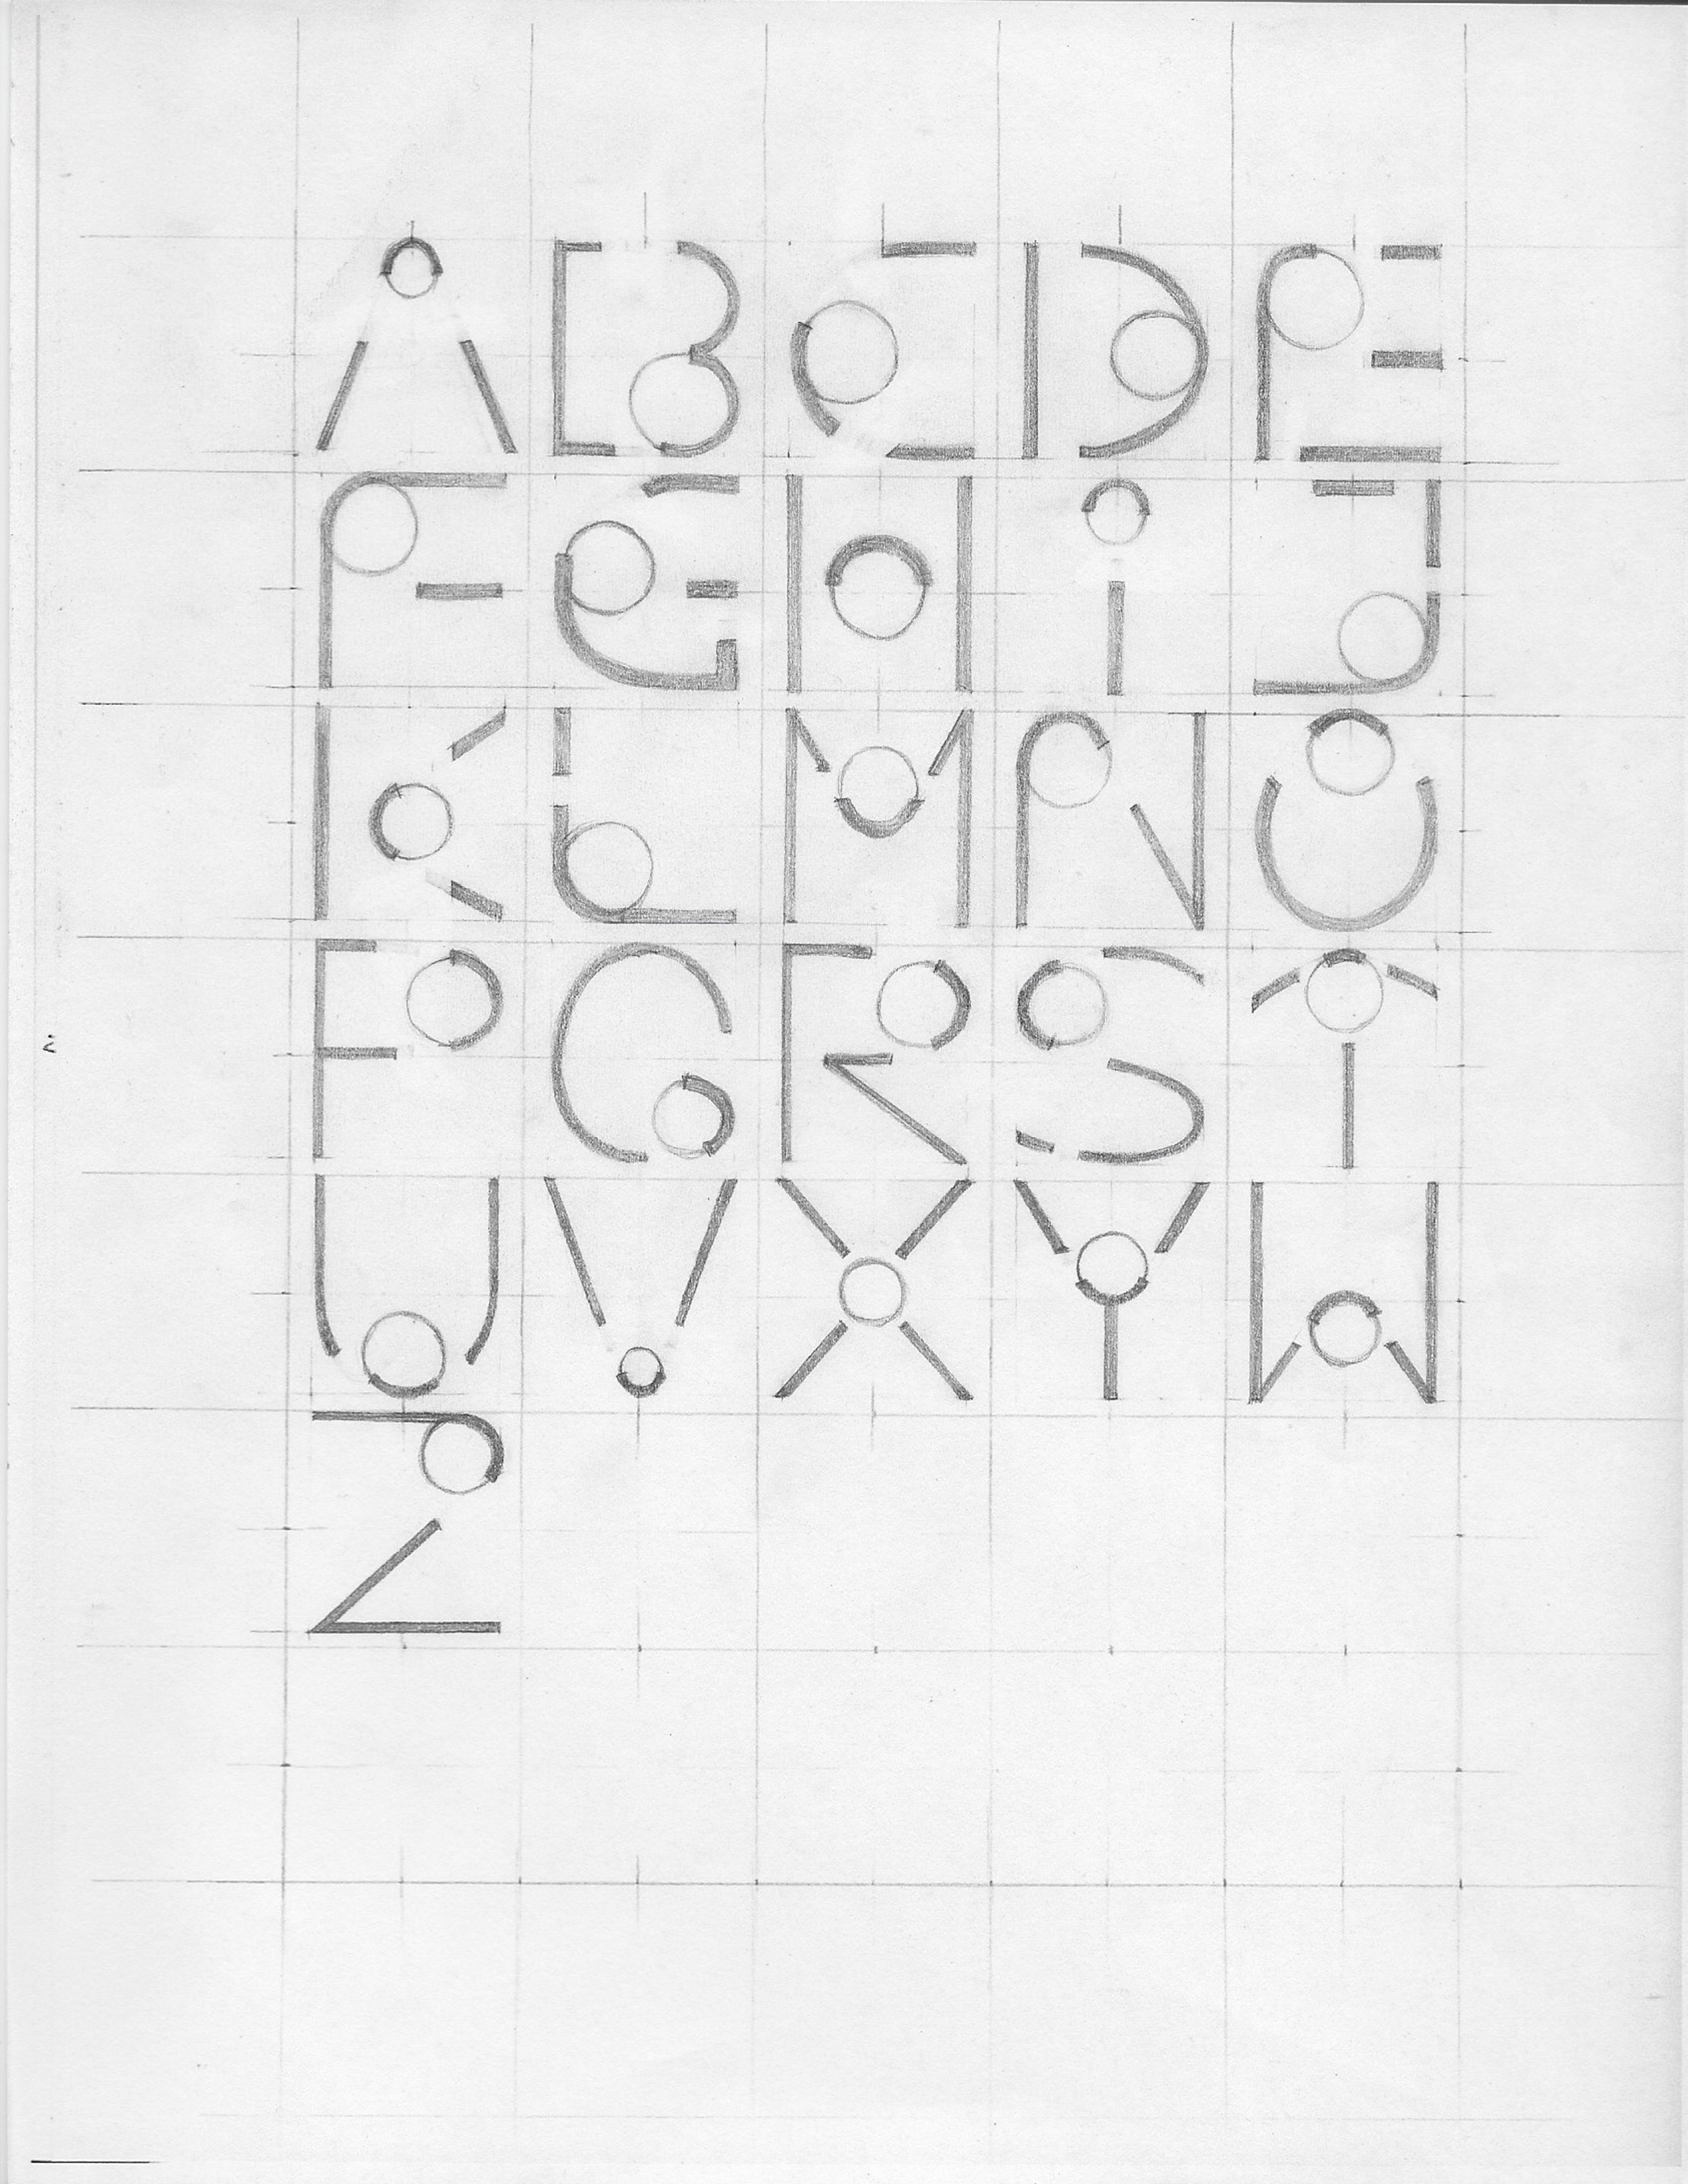 A B C D E
F G H i J
K L M N O
P Q R S T
U V X Y W
Z